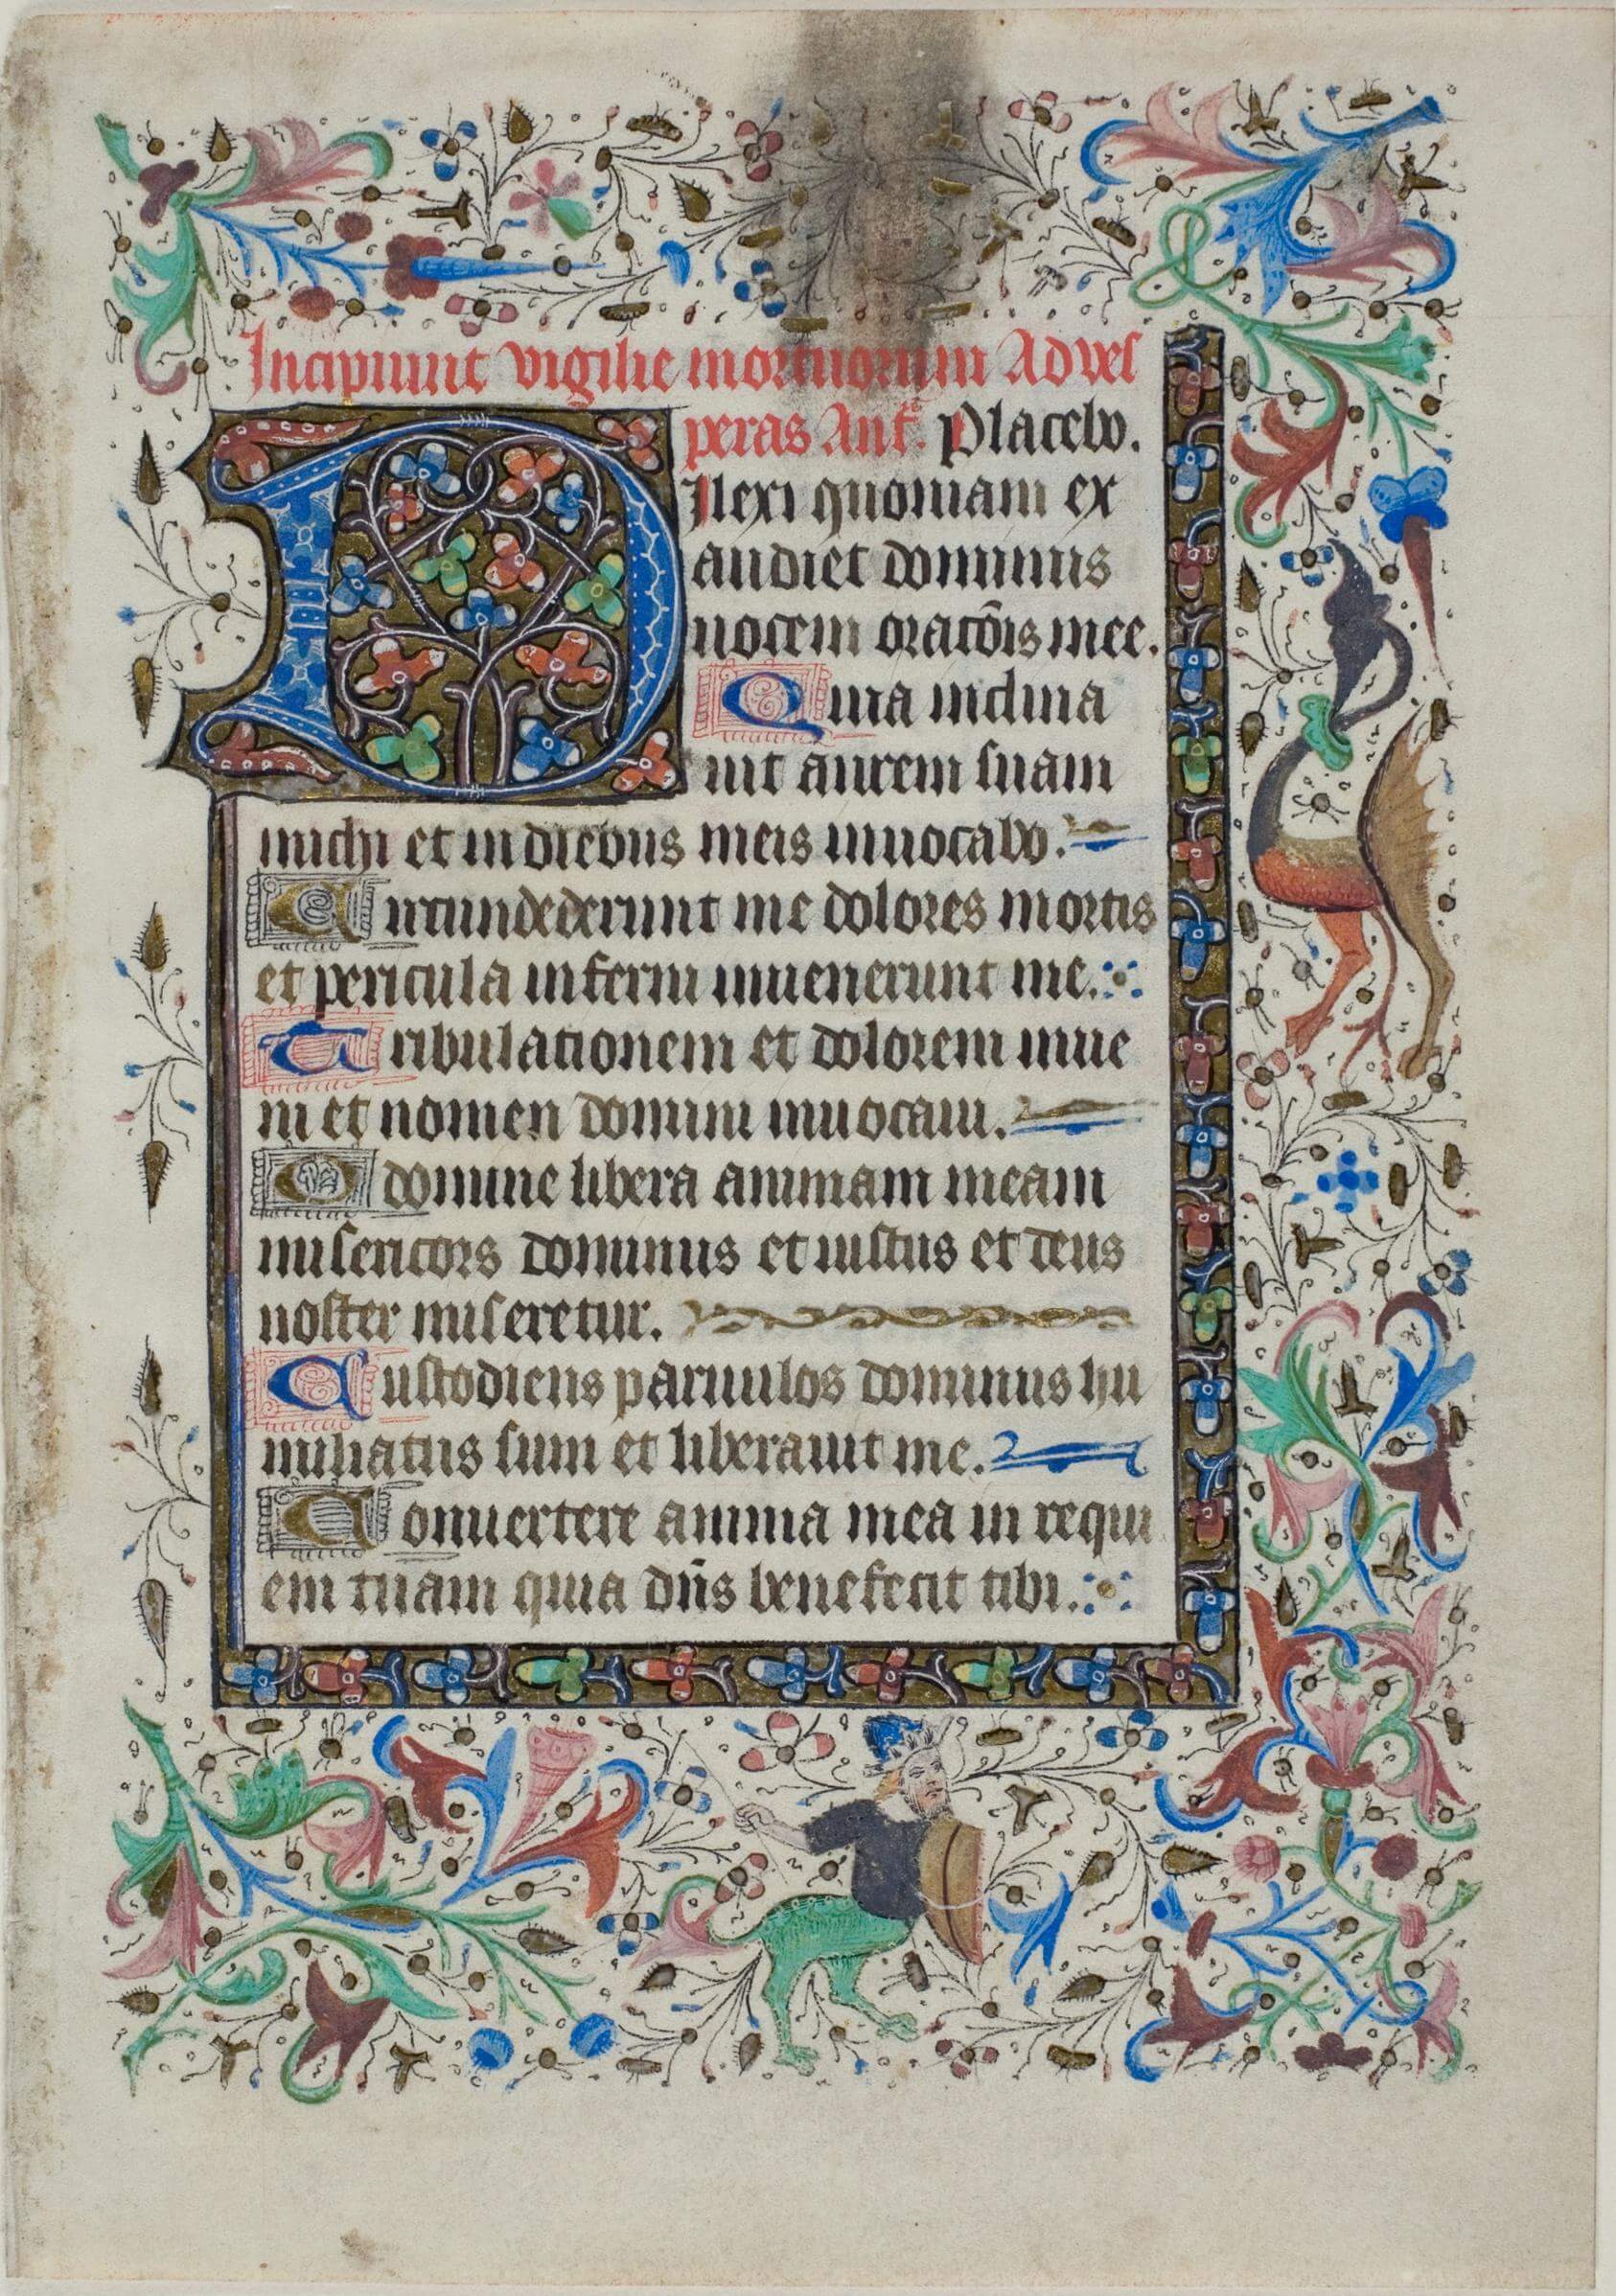 Incipiunt vigilie mortuorum Ad ves
peras Ant̃. Placebo.
Dilexi quoniam ex
audiet dominus
uocem orac̃õis mee.
Quia inclina
uit aurem suam
michi et in diebus meis inuocabo.
Circundederunt me dolores mortis
et pericula inferni inuenerunt me.
Tribulationem et dolorem inue
ni et nomen domini inuocaui.
O domine libera animam meam
misericors dominus et iustus et deus
noster miseretur.
Custodiens paruulos dominus hu
miliatus sum et liberauit me.
Conuertere anima mea in requi
em tuam quia dñs benefecit tibi.